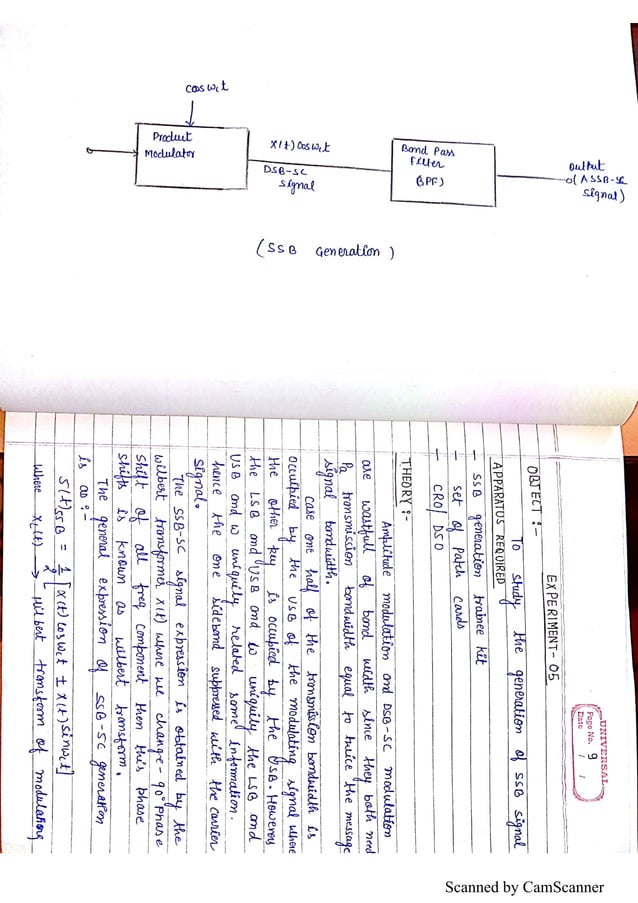 cos wct
Product
Modulator
X(t) cos wct
DSB-SC
Signal
Band Pass
Filter
(BPF)
output
(A SSB-SC
Signal)
(SSB Generation)
UNIVERSAL
Page No. 9
Date / /
EXPERIMENT-05
OBJECT :-
To study the generation of SSB signal
APPARATUS REQUIRED
- SSB generation trainee kit
- set of Patch cards
- CRO/DSO
THEORY :-
Amplitude modulation and DSB-SC modulation
are wastfull of band width since they both need
a transmission bandwidth equal to twice the message
signal bandwidth.
Case one half of the transmission bandwidth is
occupied by the USB of the modulating signal where
the other key is occupied by the USB. However
the LSB and USB and w uniquily the LSB and
USB and w uniquily related some information.
hence the one sideband suppressed with the carrier
signal.
The SSB-SC signal expression is obtained by the
wilbert transformer X(t) where we change - 90° Phase
shift of all freq component then this phase
shifts is known as wilbert transform.
The general expression of SSB-SC generation
is as :-
S(t)SSB = 1/2 [x(t) cos wct ± x(t) sin wct]
where xh(t) → Hilbert transform of modulating
Scanned by CamScanner